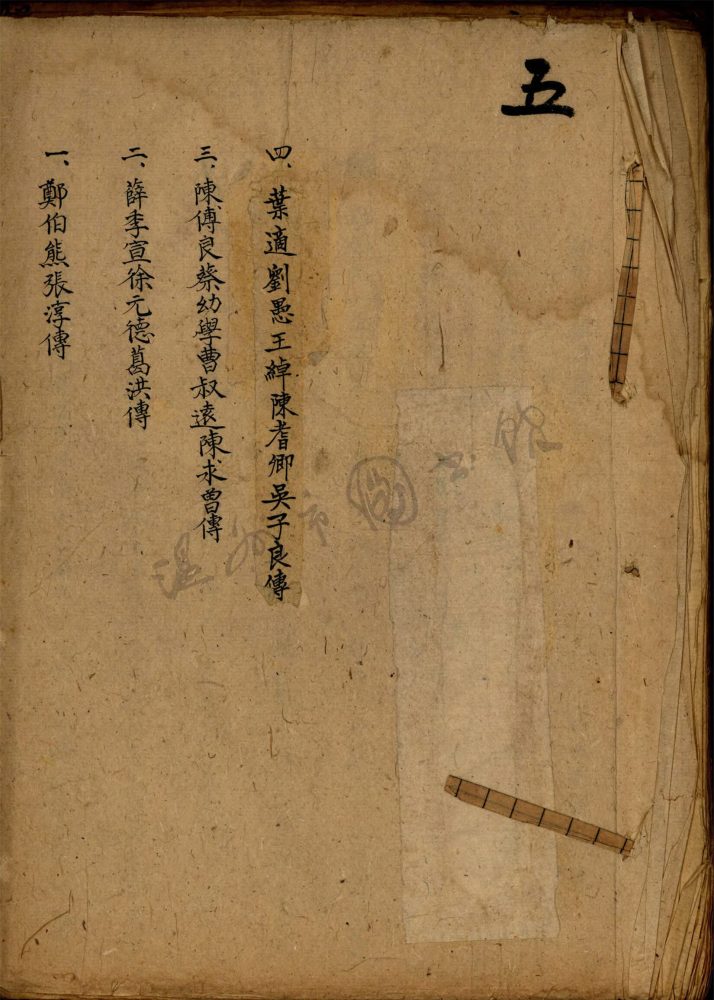 五
四、葉適劉愚王綽陳耆卿吳子良傳
三、陳傅良蔡幼學曹叔遠陳求曾傳
二、薛季宣徐元德葛洪傳
一、鄭伯熊張淳傳
温州市圖書館